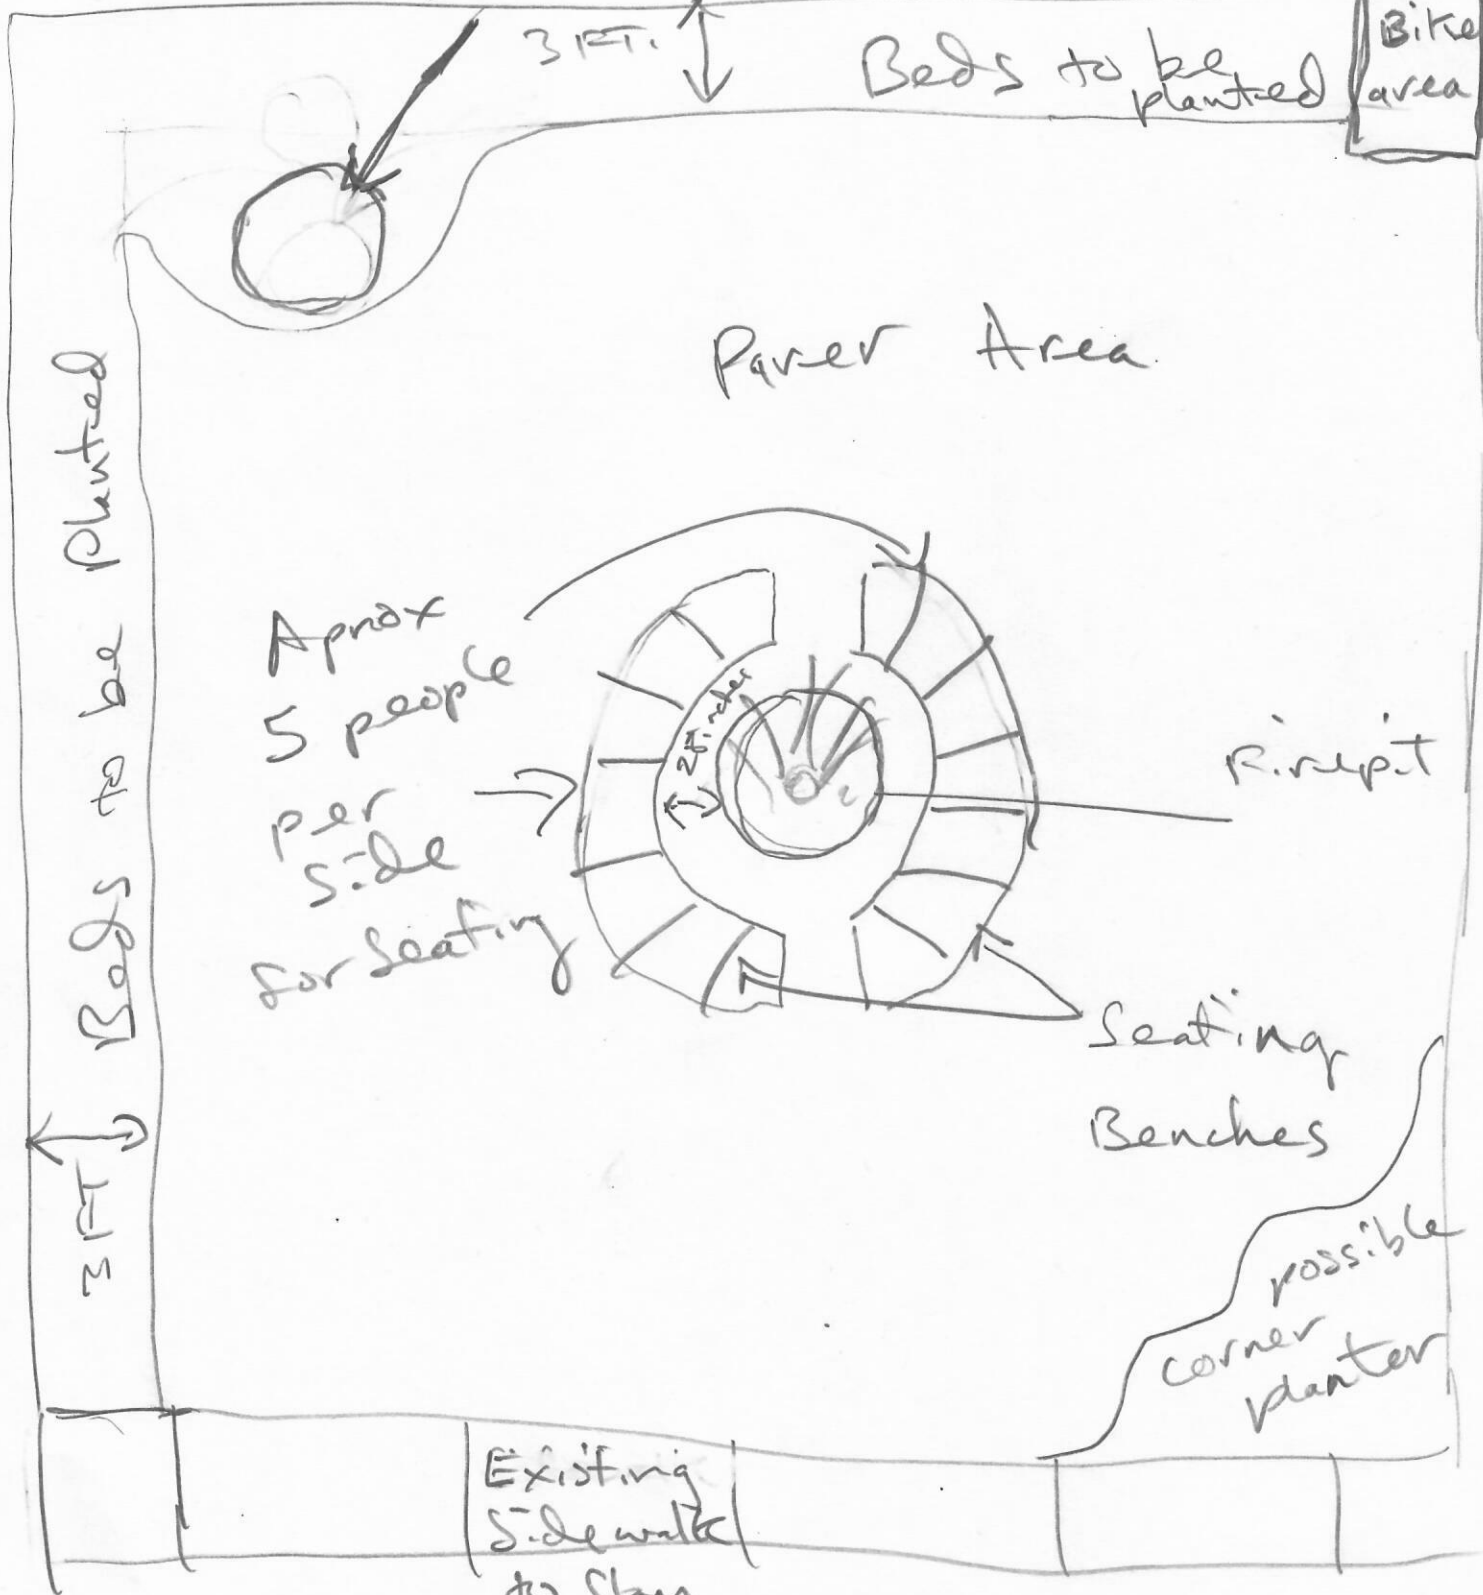 3 FT.
Beds to be
planted
Bike
area
Paver Area
Beds to be planted
3 FT
Aprox
5 people
per
side
for seating
Firepit
Seating
Benches
possible
corner
planter
Existing
Sidewalk
to Stay